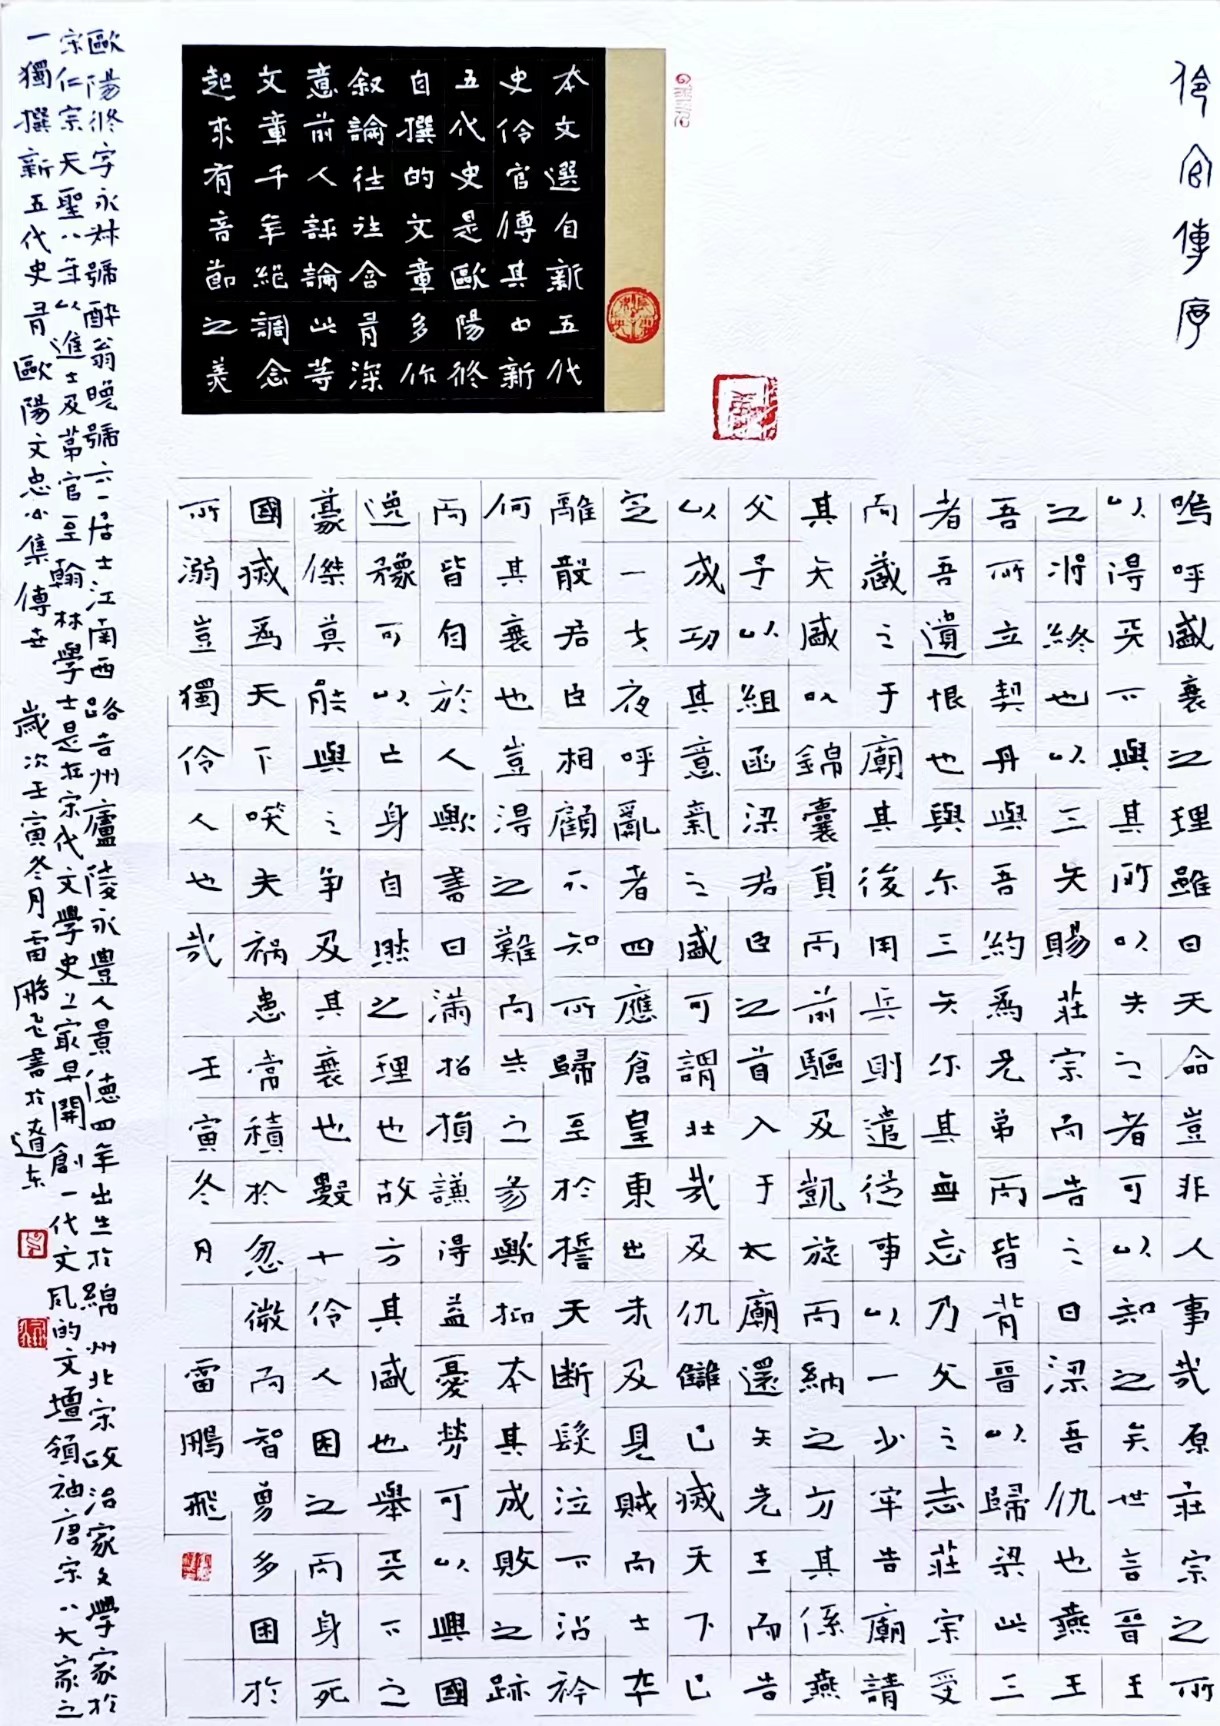 伶官傳序
本文選自新五代
史伶官傳其中新
五代史是歐陽修
自撰的文章多作
叙論往往含有深
意前人評論此等
文章千年絕調念
起來有音節之美
嗚呼盛衰之理雖曰天命豈非人事哉原莊宗之所
以得天下與其所以失之者可以知之矣世言晉王
之將終也以三矢賜莊宗而告之曰梁吾仇也燕王
吾所立契丹與吾約為兄弟而皆背晉以歸梁此三
者吾遺恨也與尔三矢尔其無忘乃父之志莊宗受
而藏之于廟其後用兵則遣從事以一少牢告廟請
其矢盛以錦囊負而前驅及凱旋而納之方其係燕
父子以組函梁君臣之首入于太廟還矢先王而告
以成功其意氣之盛可謂壯哉及仇讎已滅天下已
定一夫夜呼亂者四應倉皇東出未及見賊而士卒
離散君臣相顧不知所歸至於誓天斷髮泣下沾衿
何其衰也豈得之難而失之易歟抑本其成敗之跡
而皆自於人歟書曰滿招損謙得益憂勞可以興國
逸豫可以亡身自然之理也故方其盛也舉天下之
豪傑莫能與之爭及其衰也數十伶人困之而身死
國滅為天下笑夫禍患常積於忽微而智勇多困於
所溺豈獨伶人也哉 壬寅冬月 雷鵬飛
歐陽修字永叔號醉翁晚號六一居士江南西路吉州廬陵永豐人景德四年出生於綿州北宋政治家文學家於
宋仁宗天聖八年以進士及第官至翰林學士是在宋代文學史上最早開創一代文風的文壇領袖唐宋八大家之
一獨撰新五代史有歐陽文忠公集傳世 歲次壬寅冬月雷鵬飛書於遼东